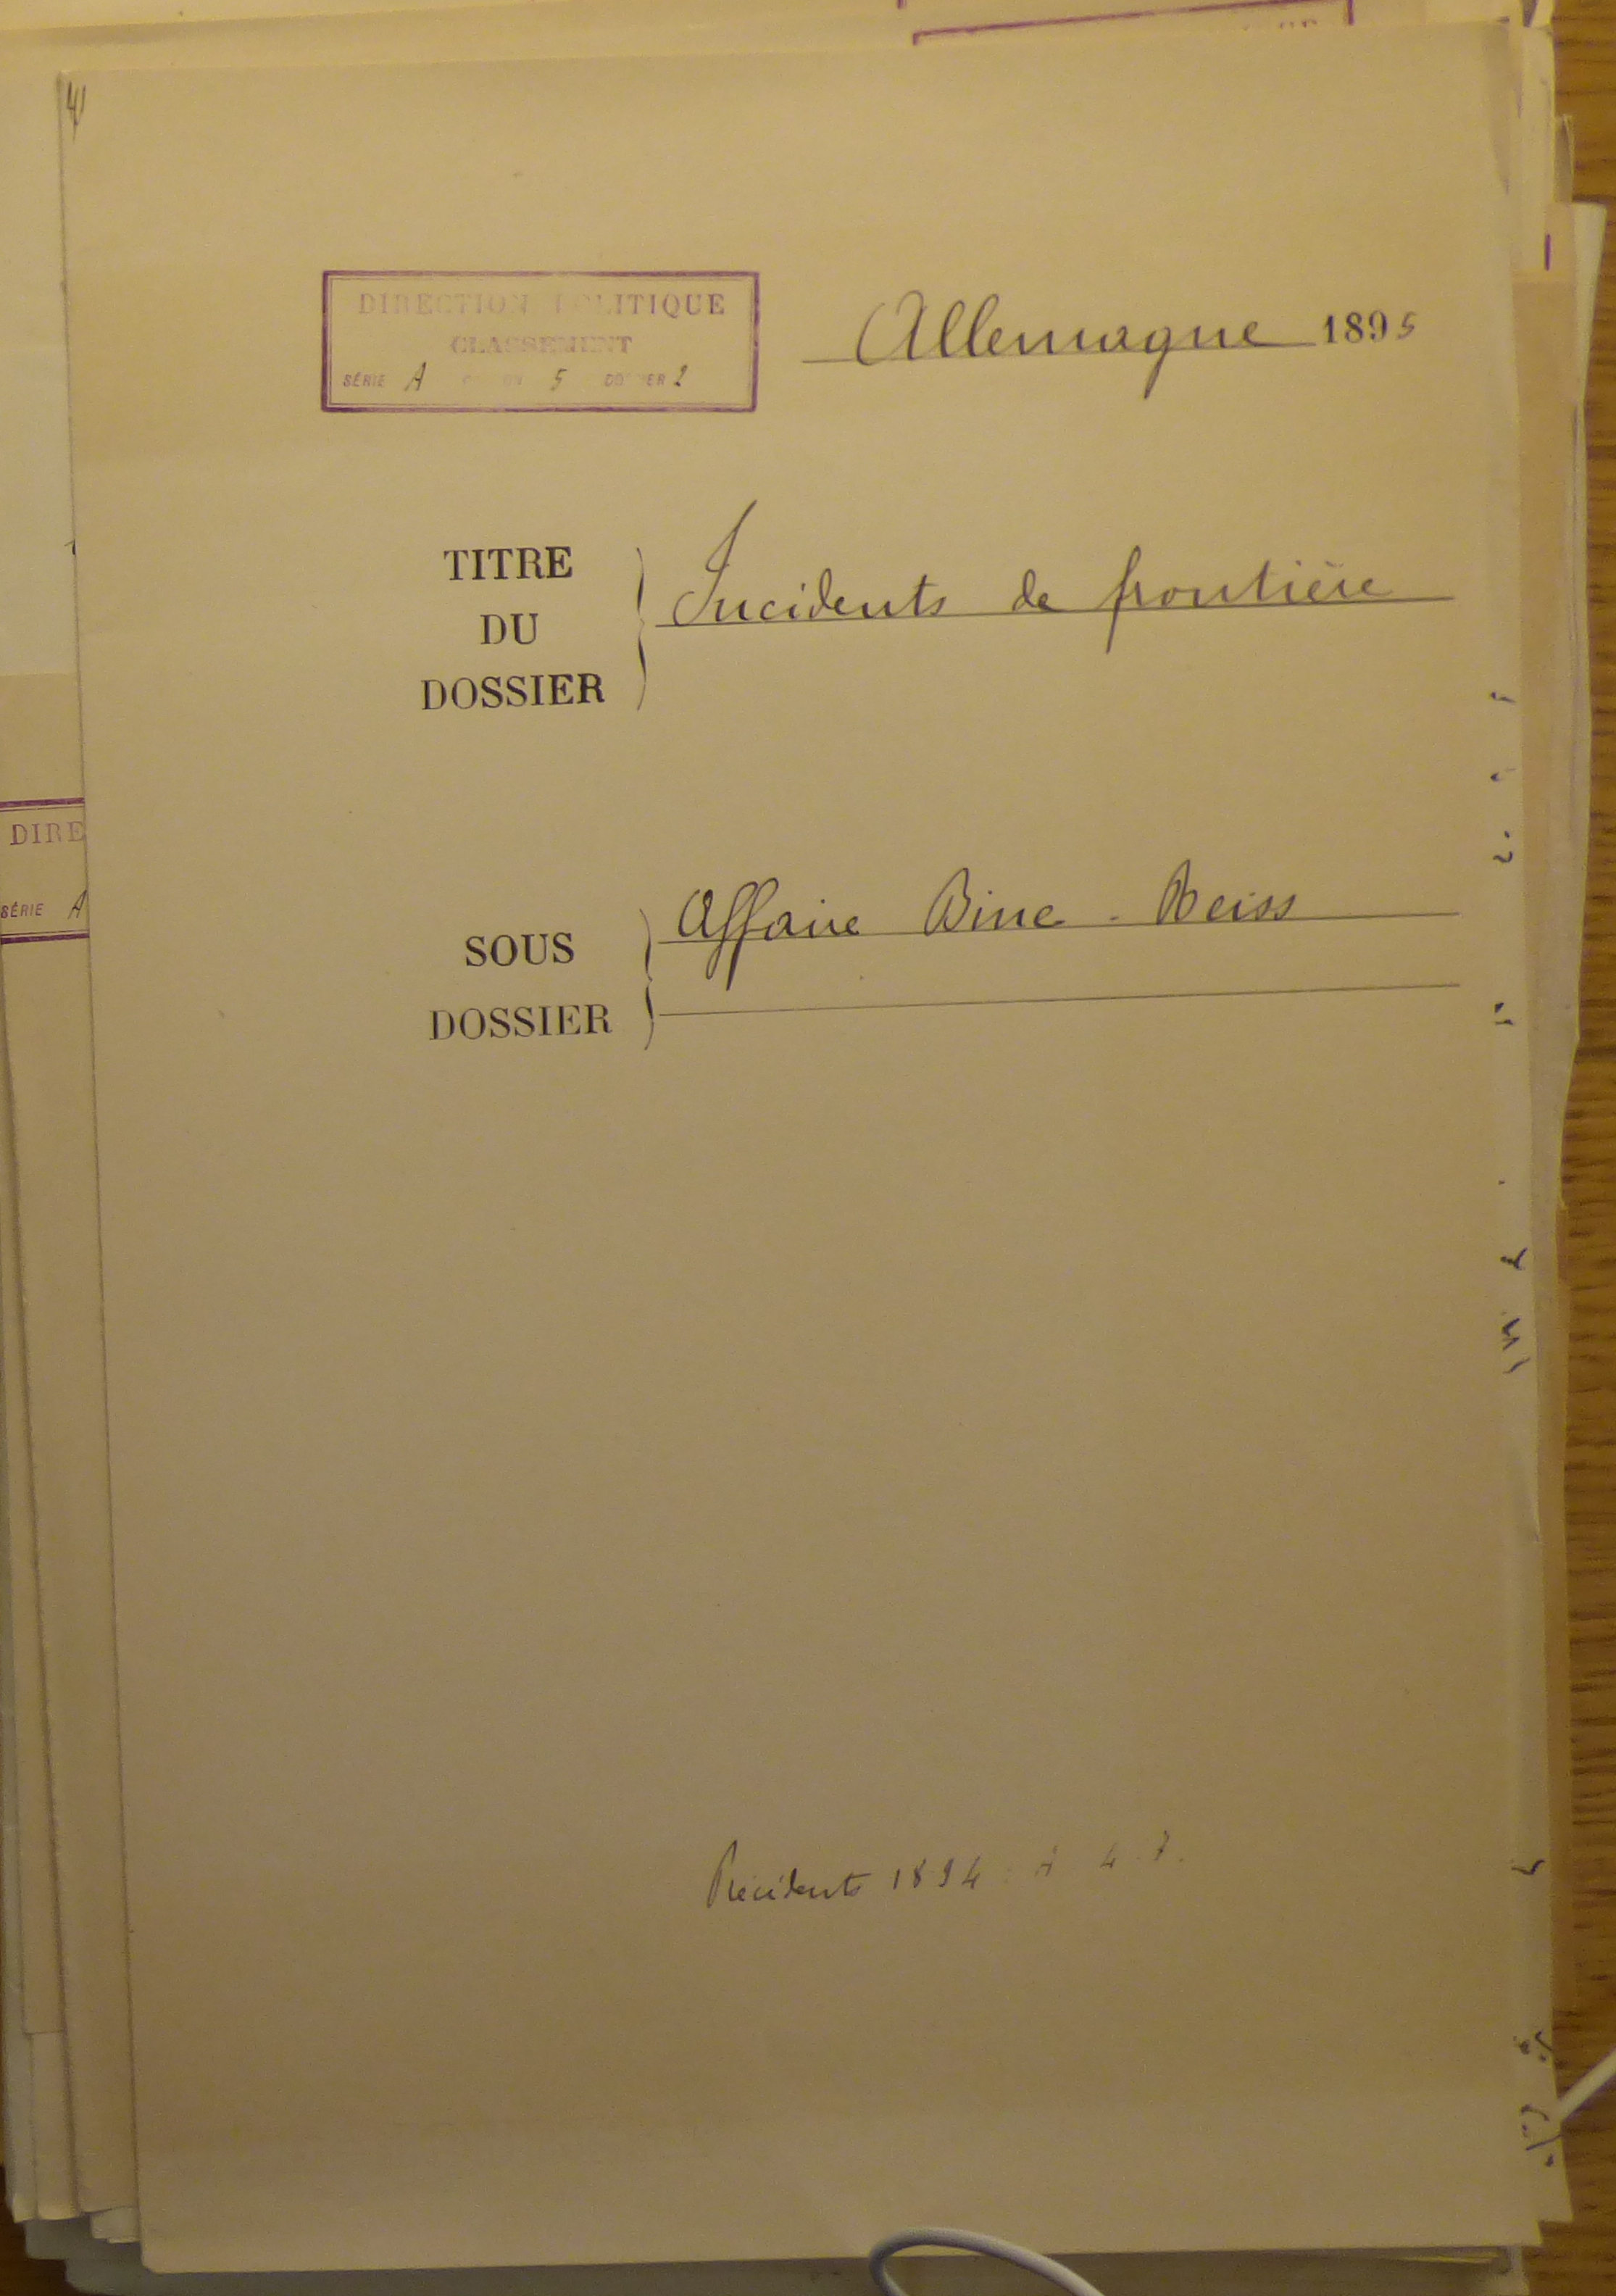 DIRECTION POLITIQUE
CLASSEMENT
SÉRIE A 5 DOSSIER 2
Allemagne 1895
TITRE
DU
DOSSIER
Incidents de frontière
Affaire Bine - Reiss
SOUS
DOSSIER
Précédents 1894 : A 4. 7.
DIRE
SÉRIE A